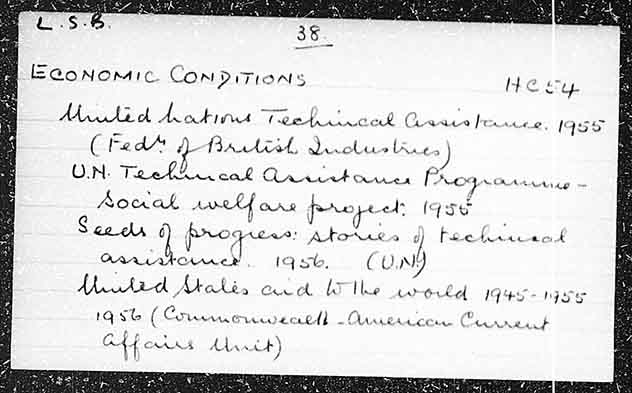 L.S.B.
38.
ECONOMIC CONDITIONS HC54
United Nations Technical Assistance. 1955
(Fedn. of British Industries)
U.N. Technical Assistance Programme -
Social welfare project. 1955
Seeds of progress: stories of technical
assistance. 1956. (U.N)
United States aid to the world 1945-1955
1956 (Commonwealth - American Current
Affairs Unit)